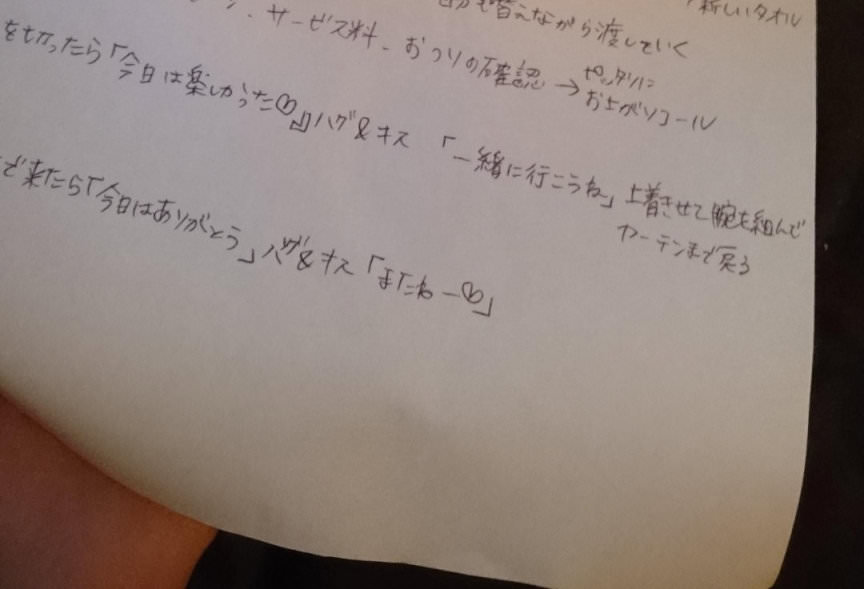 新しいタオル
も答えながら渡していく
、サービス料、おつりの確認→ピッタリに
お上がりコール
を切ったら「今日は楽しかった♡」ハグ&キス 「一緒に行こうね」上着きせて腕を組んで
カーテンまで戻る
で来たら「今日はありがとう」ハグ&キス「またねー♡」